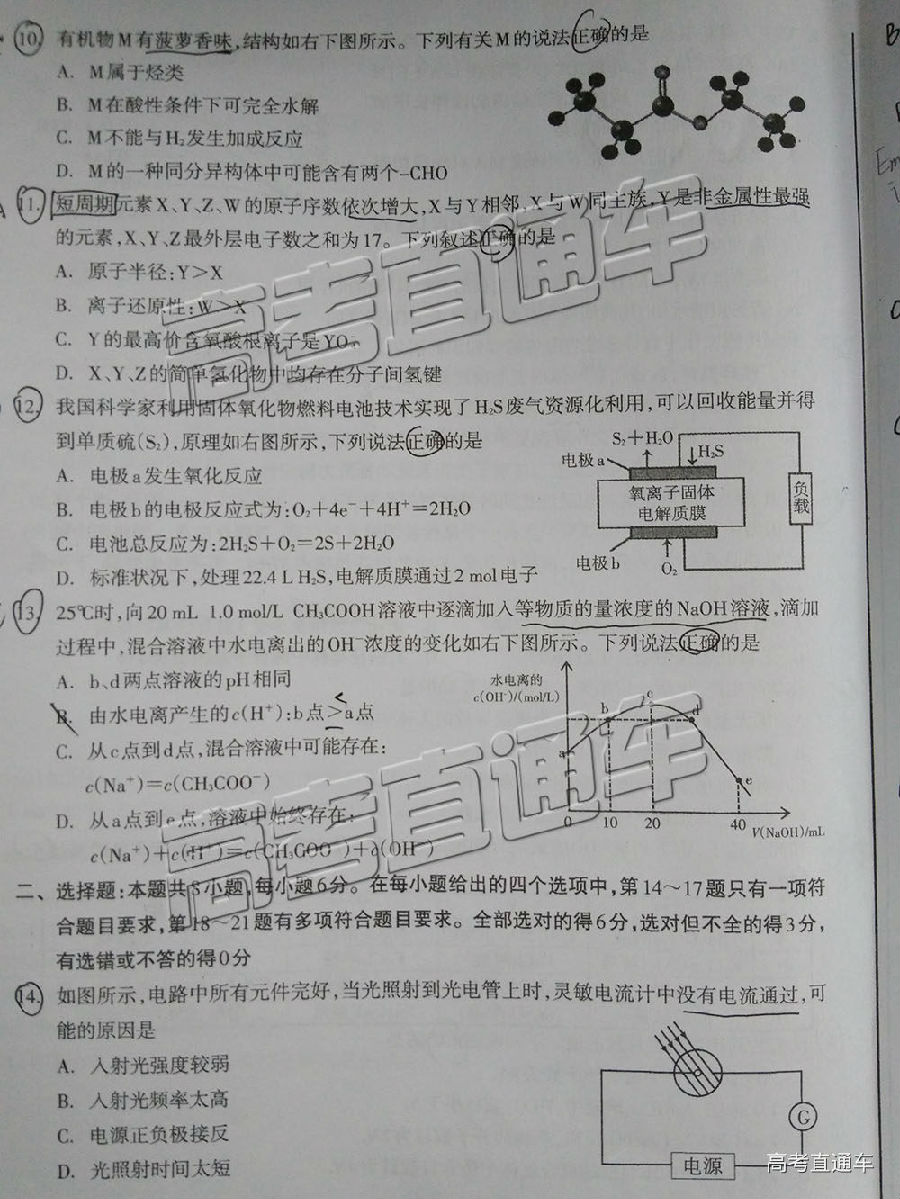 10. 有机物M有菠萝香味,结构如右下图所示。下列有关M的说法正确的是
A. M属于烃类
B. M在酸性条件下可完全水解
C. M不能与H₂发生加成反应
D. M的一种同分异构体中可能含有两个–CHO
11. 短周期元素X、Y、Z、W的原子序数依次增大,X与Y相邻,X与W同主族,Y是非金属性最强
的元素,X、Y、Z最外层电子数之和为17。下列叙述正确的是
A. 原子半径:Y>X
B. 离子还原性:W>X
C. Y的最高价含氧酸根离子是YO
D. X、Y、Z的简单氢化物中均存在分子间氢键
12. 我国科学家利用固体氧化物燃料电池技术实现了H₂S废气资源化利用,可以回收能量并得
到单质硫(S₂),原理如右图所示,下列说法正确的是
A. 电极a发生氧化反应
B. 电极b的电极反应式为:O₂+4e⁻+4H⁺=2H₂O
C. 电池总反应为:2H₂S+O₂=2S+2H₂O
D. 标准状况下,处理22.4 L H₂S,电解质膜通过2 mol电子
S₂+H₂O
H₂S
电极a
氧离子固体
电解质膜
负
载
电极b
O₂
13. 25℃时,向20 mL 1.0 mol/L CH₃COOH溶液中逐滴加入等物质的量浓度的NaOH溶液,滴加
过程中,混合溶液中水电离出的OH⁻浓度的变化如右下图所示。下列说法正确的是
A. b、d两点溶液的pH相同
<
B. 由水电离产生的c(H⁺):b点>a点
C. 从c点到d点,混合溶液中可能存在:
c(Na⁺)=c(CH₃COO⁻)
D. 从a点到e点,溶液中始终存在:
c(Na⁺)+c(H⁺)=c(CH₃COO⁻)+c(OH⁻)
水电离的
c(OH⁻)/(mol/L)
a
b
c
d
e
0 10 20 40 V(NaOH)/mL
二、选择题:本题共8小题,每小题6分。在每小题给出的四个选项中,第14~17题只有一项符
合题目要求,第18~21题有多项符合题目要求。全部选对的得6分,选对但不全的得3分,
有选错或不答的得0分
14. 如图所示,电路中所有元件完好,当光照射到光电管上时,灵敏电流计中没有电流通过,可
能的原因是
A. 入射光强度较弱
B. 入射光频率太高
C. 电源正负极接反
D. 光照射时间太短
G
电源
高考直通车
高考直通车
高考直通车